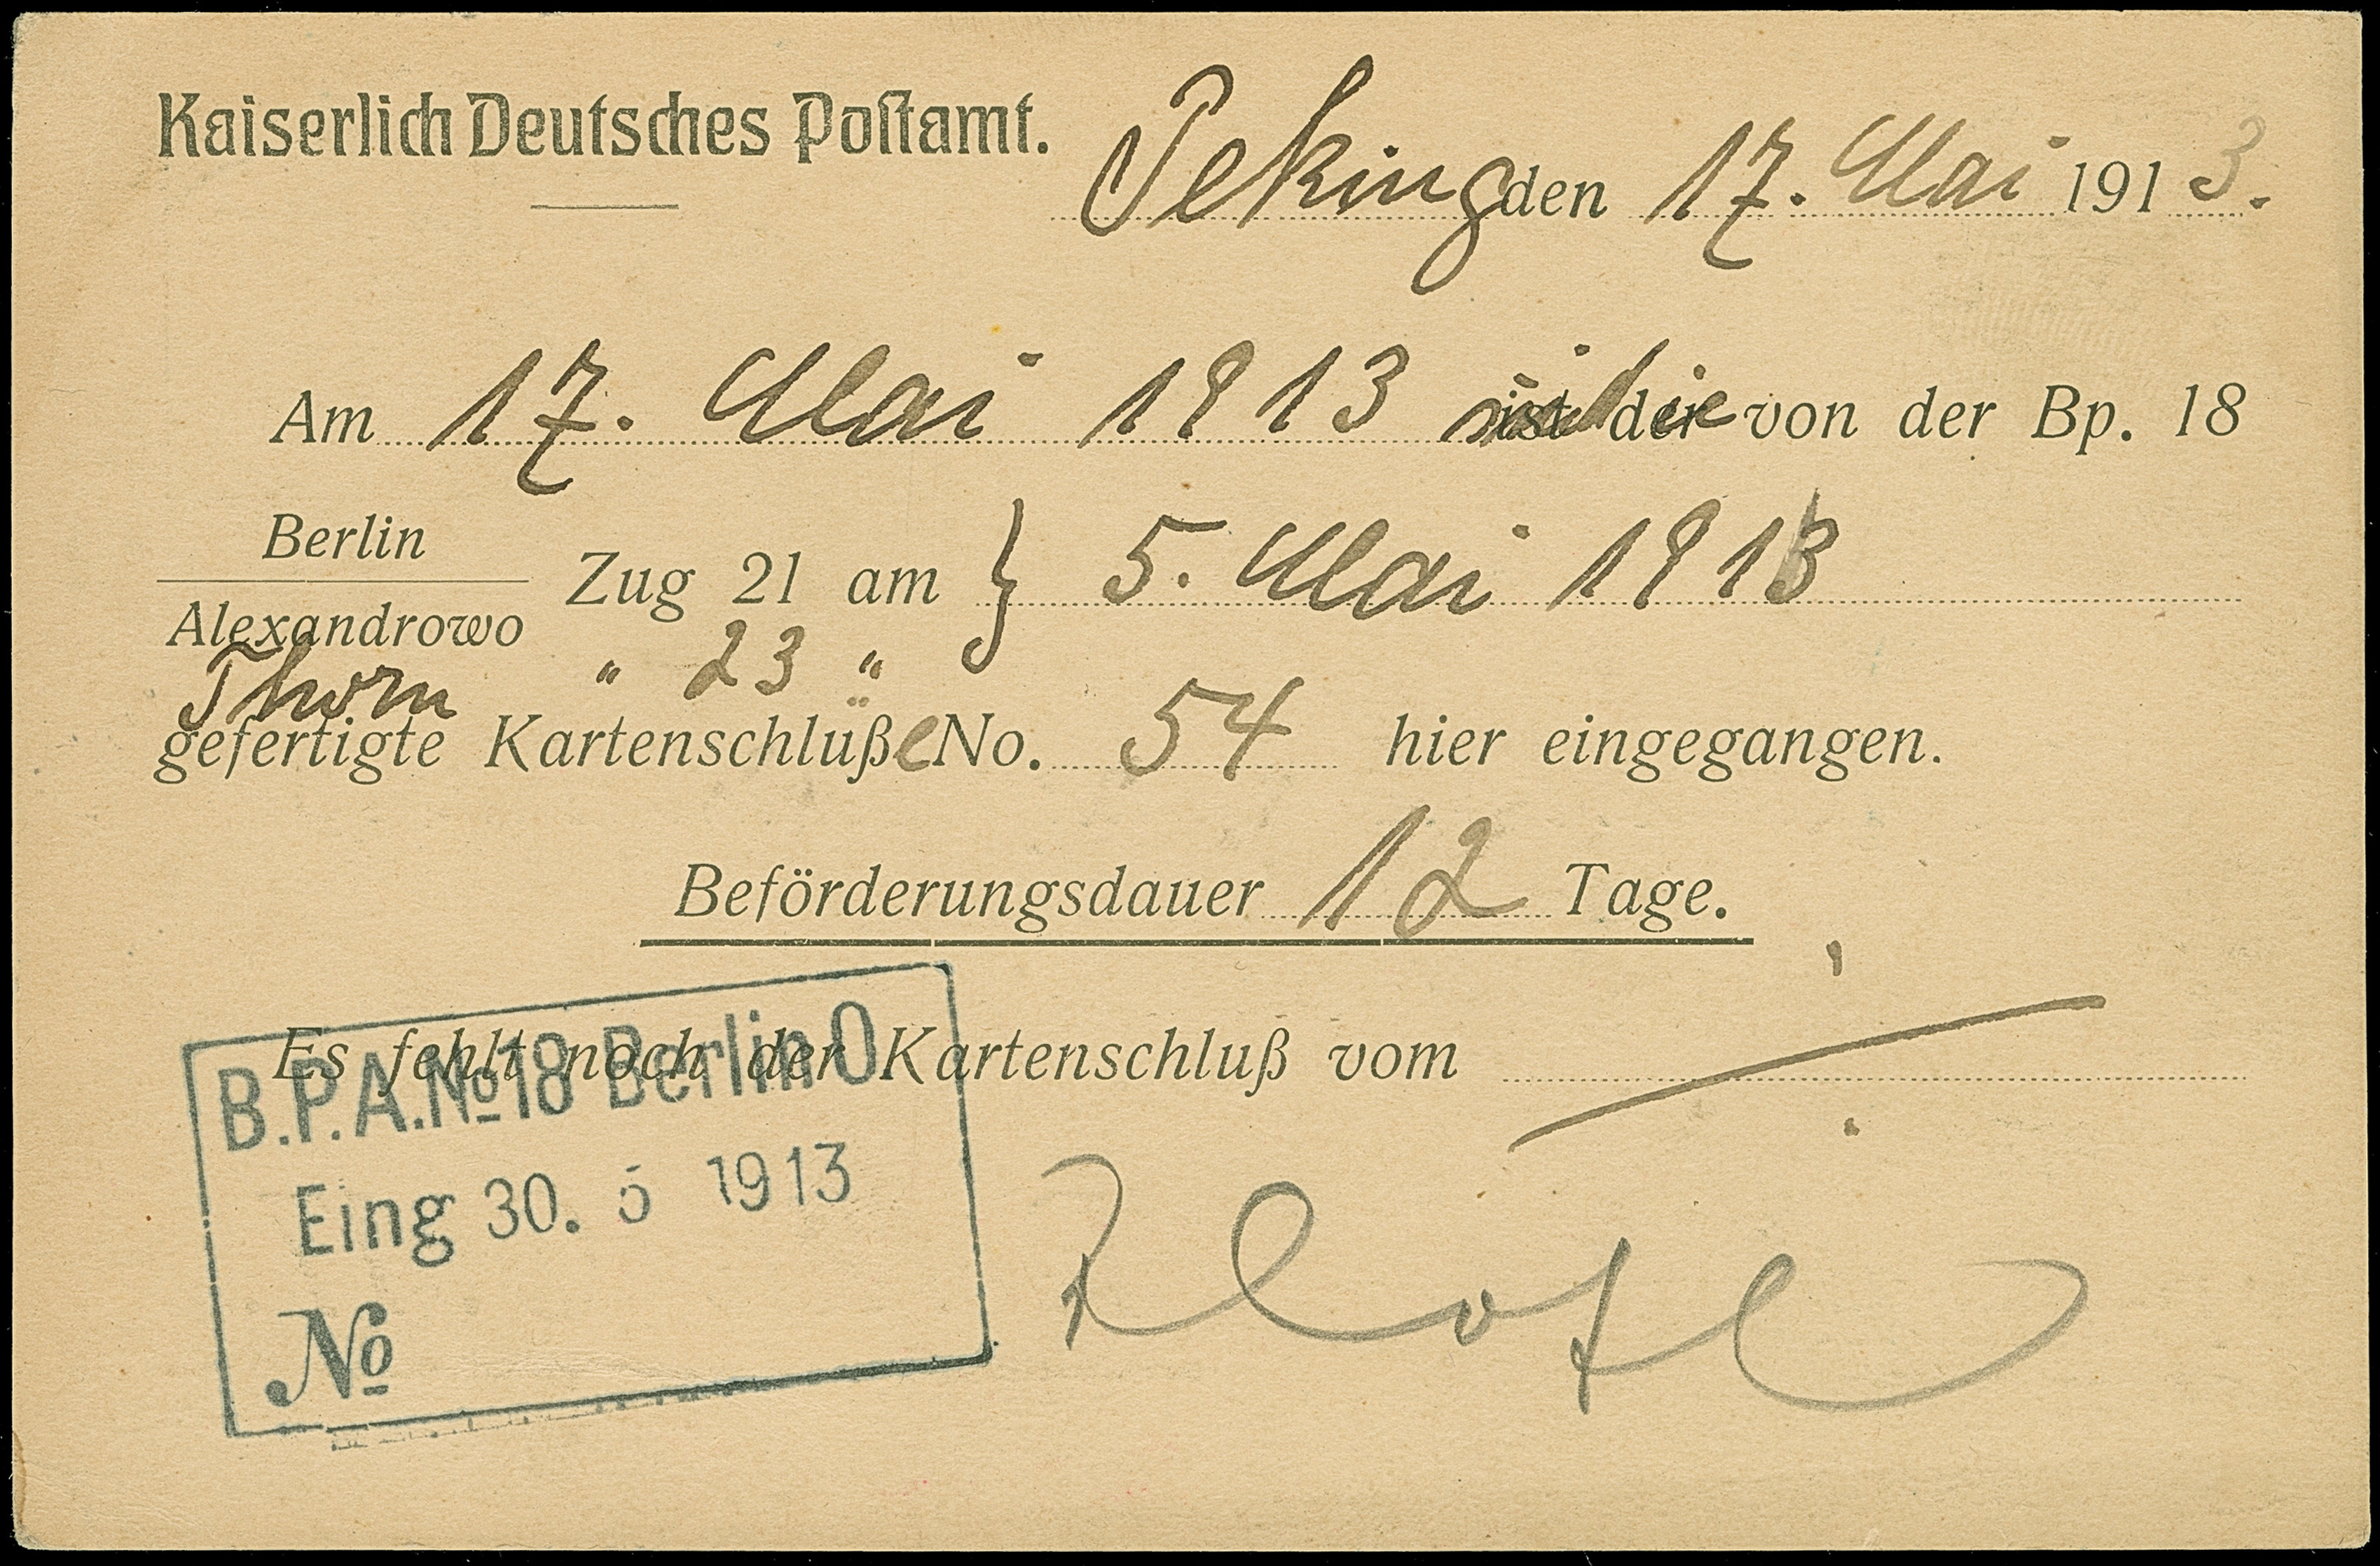 Kaiserlich Deutsches Postamt.
Peking den 17. Mai 1913.
Am 17. Mai 1913 sind die von der Bp. 18
Berlin
Alexandrowo Zug 21 am } 5. Mai 1913
Thorn " 23 "
gefertigte Kartenschlüße No. 54 hier eingegangen.
Beförderungsdauer 12 Tage.
Es fehlt noch der Kartenschluß vom
B.P.A. No 18 Berlin O
Eing 30. 5 1913
No